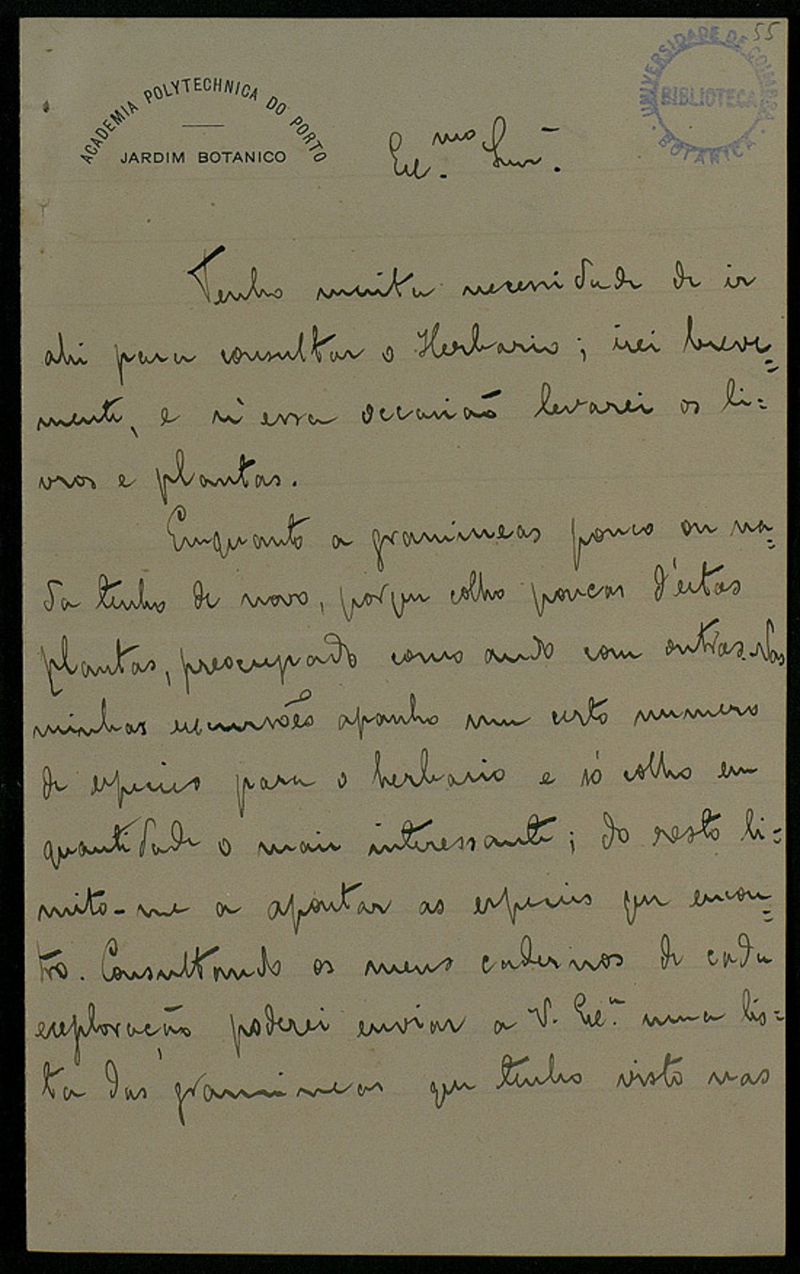 55
UNIVERSIDADE DE COIMBRA
BIBLIOTECA
BOTANICA
ACADEMIA POLYTECHNICA DO PORTO
JARDIM BOTANICO
Ex.mo Snr.
Tenho muita necessidade de ir
ahi para consultar o Herbario; irei breve=
mente, e n'essa occasião levarei os li=
vros e plantas.
Emquanto a gramineas pouco ou na=
da tenho de novo, porque colho poucas d'estas
plantas, preocupado como ando com outras. Nas
minhas excursões apanho um certo numero
de especies para o herbario e só colho em
quantidade o mais interessante; do resto li=
mito-me a apontar as especies que encon=
tro. Consultando os meus cadernos de cada
exploração poderei enviar a V. Ex.a uma lis=
ta das gramineas que tenho visto nas